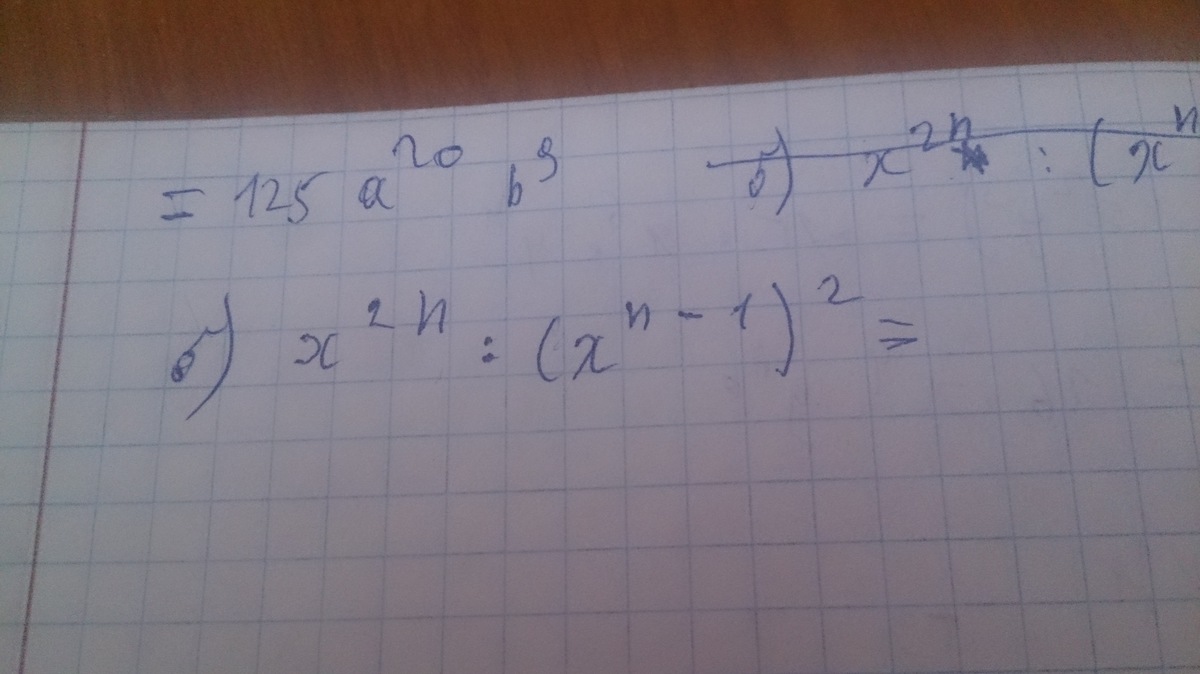 = 125 a²⁰ b⁹ б) x²ⁿ : (xⁿ
б) x²ⁿ : (xⁿ⁻¹)² =